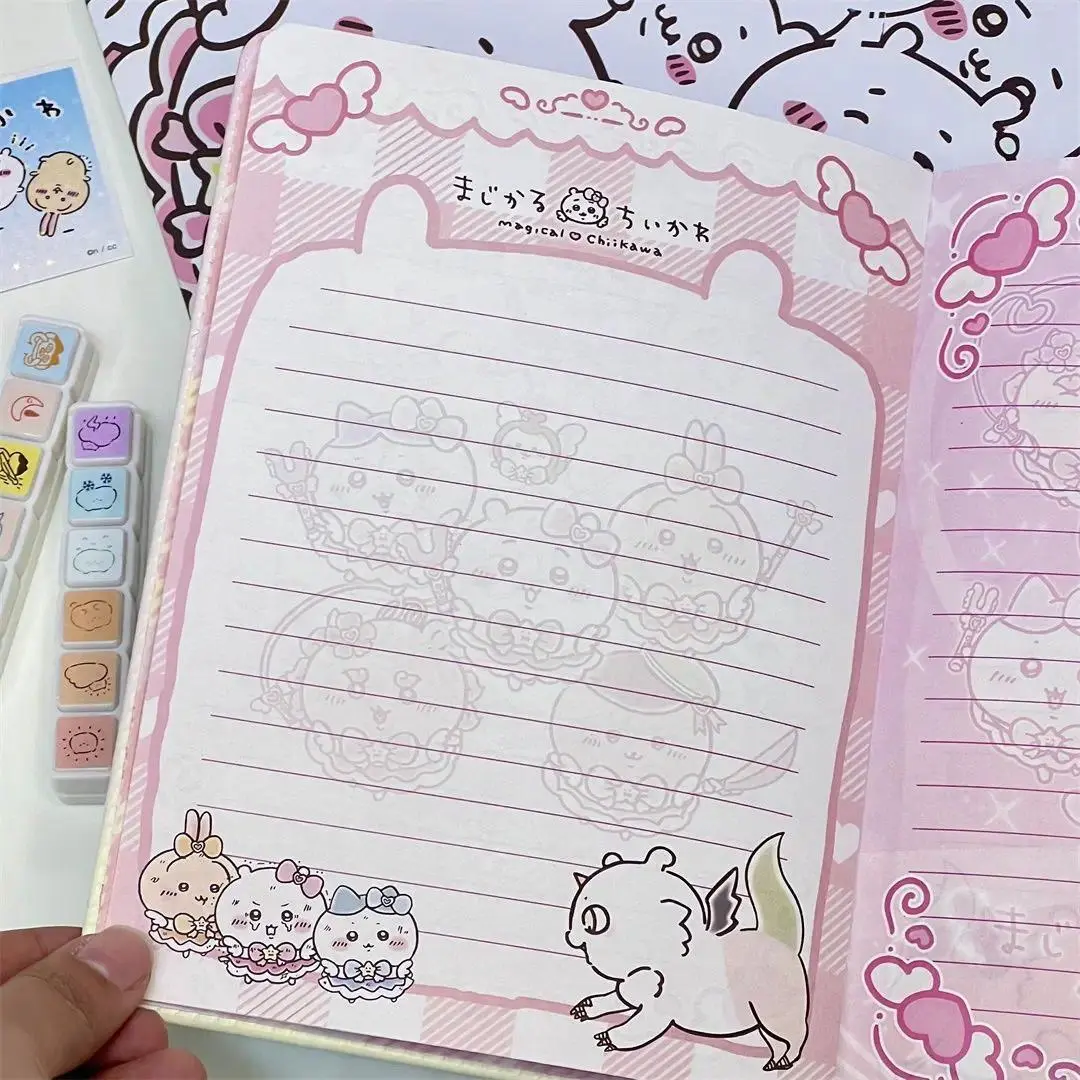 まじかる ちいかわ
magical ♡ Chiikawa
かわ
©n / cc
まじ